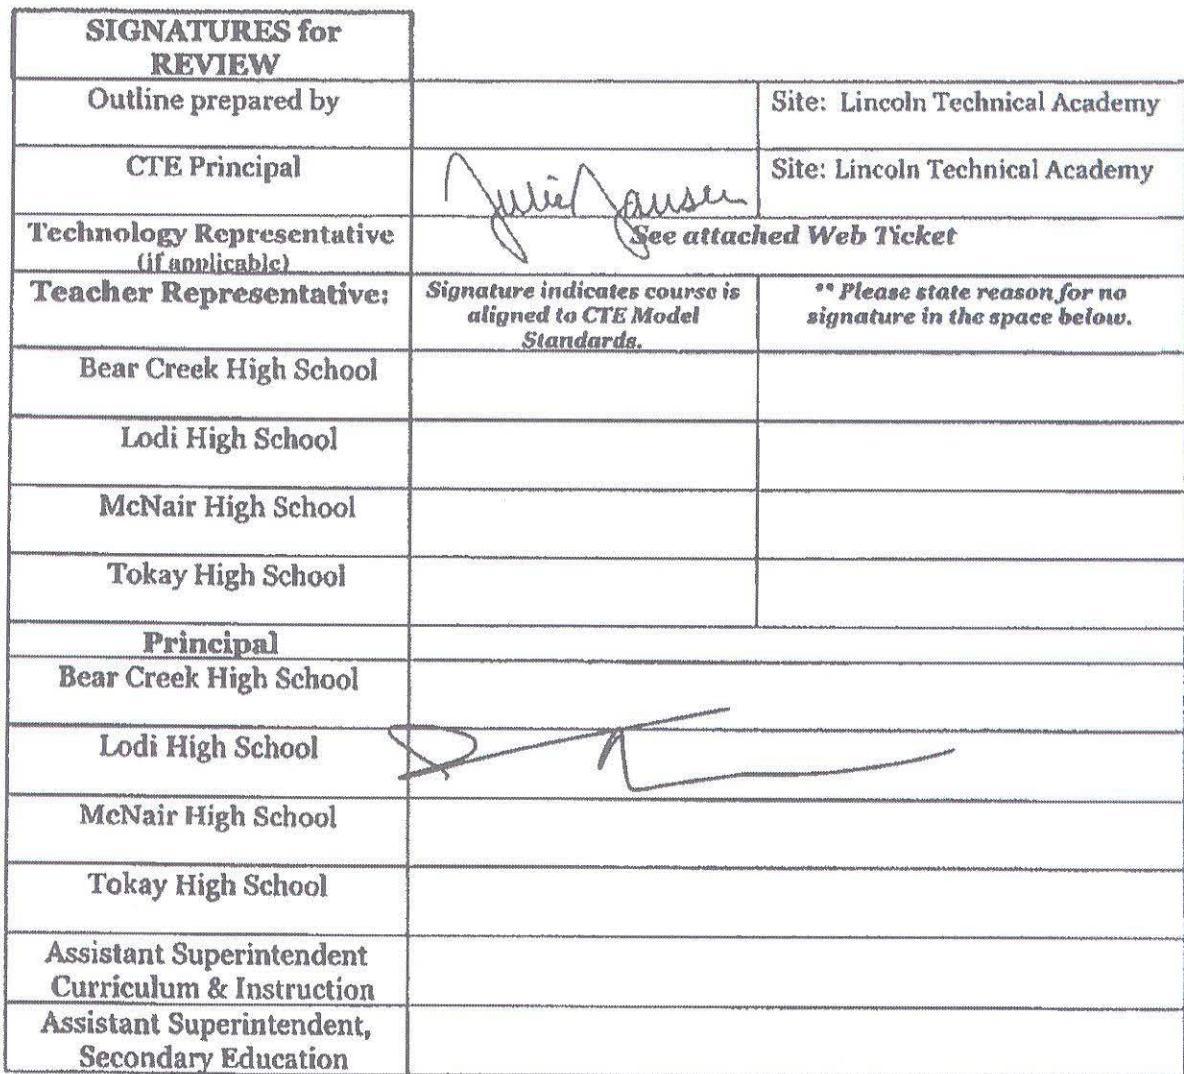 SIGNATURES for
REVIEW
Outline prepared by
Site: Lincoln Technical Academy
CTE Principal
Julie Jansen
Site: Lincoln Technical Academy
Technology Representative
(if applicable)
See attached Web Ticket
Teacher Representative:
Signature indicates course is
aligned to CTE Model
Standards.
** Please state reason for no
signature in the space below.
Bear Creek High School
Lodi High School
McNair High School
Tokay High School
Principal
Bear Creek High School
Lodi High School
McNair High School
Tokay High School
Assistant Superintendent
Curriculum & Instruction
Assistant Superintendent,
Secondary Education